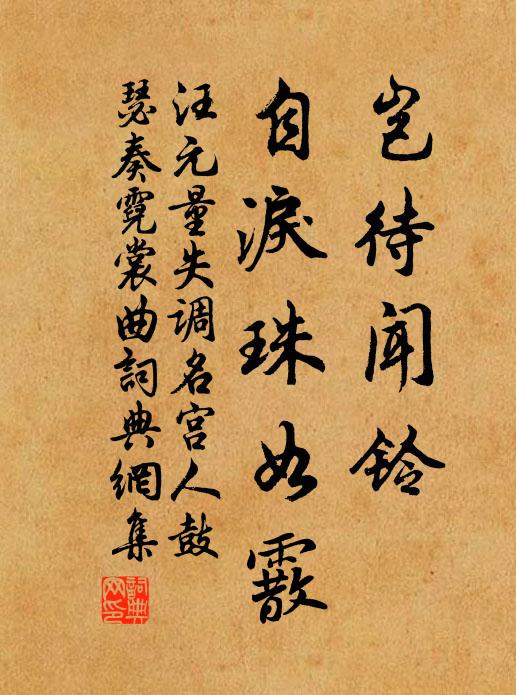 岂待闻铃
自泪珠如霰
汪元量失调名宫人鼓
瑟奏霓裳曲词典網集
詞典
网印